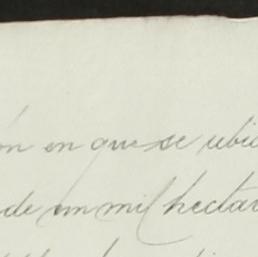 ón en que se ubic
de un mil hectar